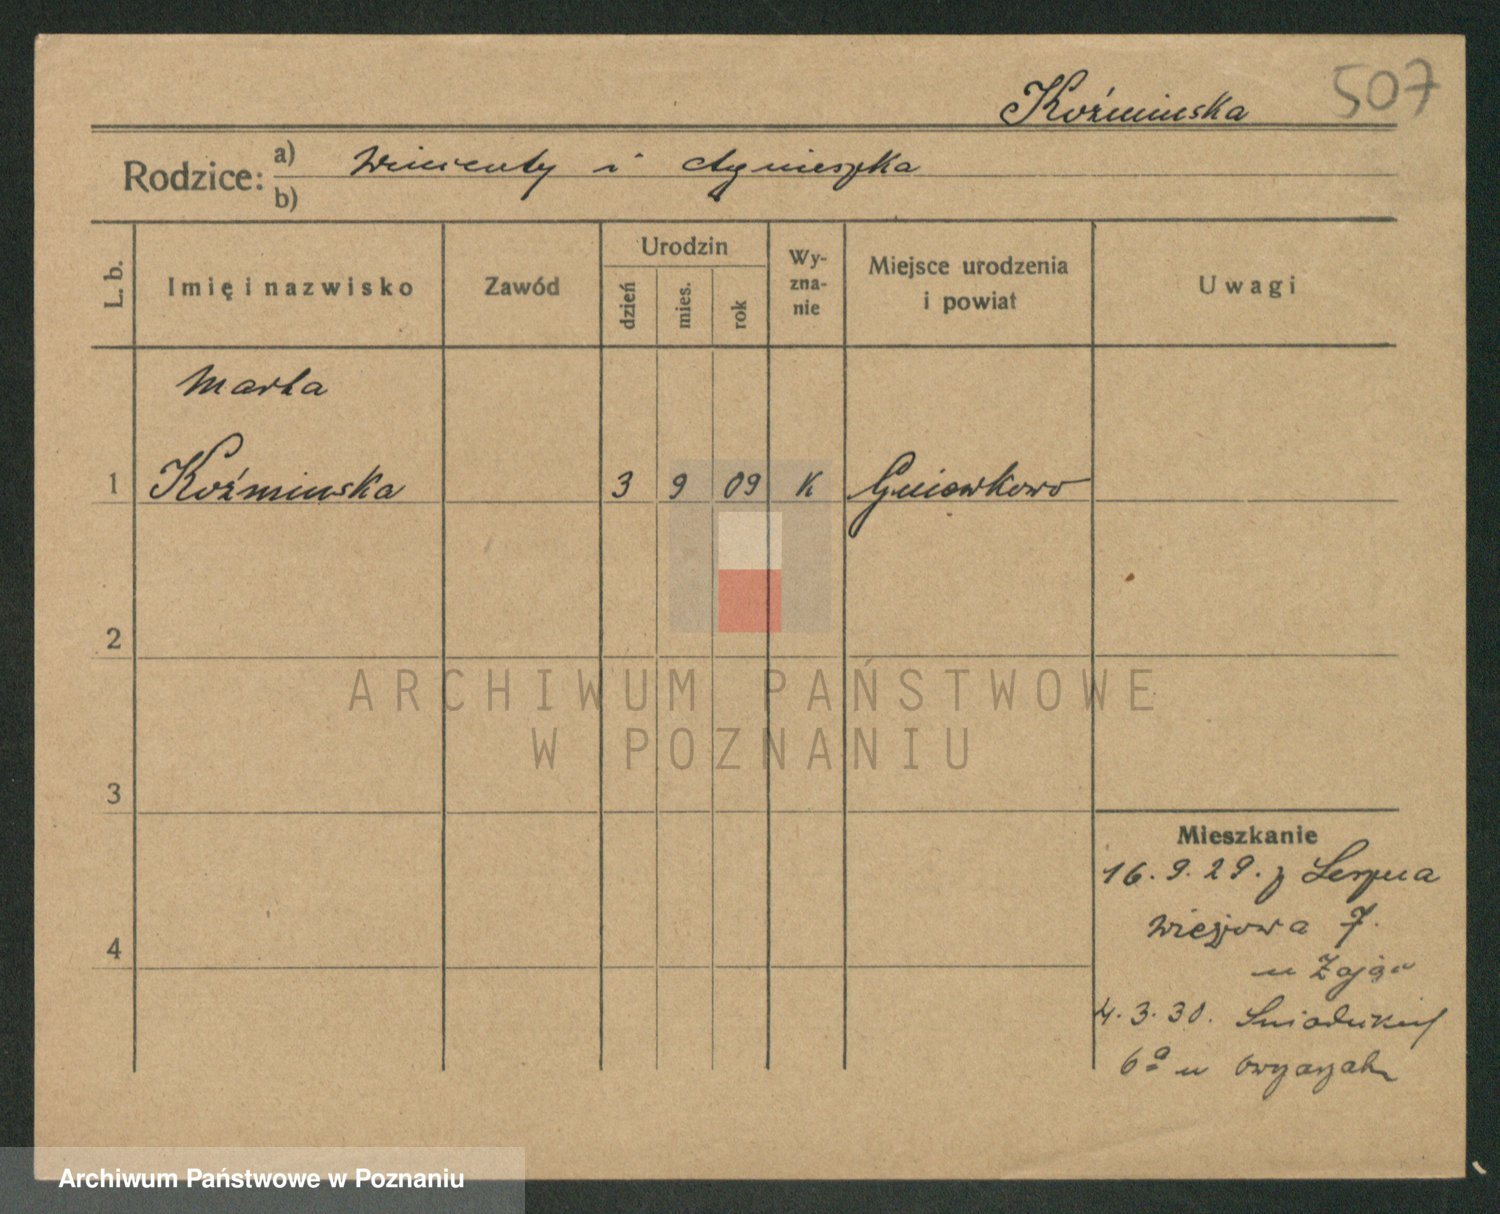 Koźmińska 507
Rodzice: a) Wincenty i Agnieszka
b)
L. b. Imię i nazwisko Zawód Urodzin dzień mies. rok Wy-zna-nie Miejsce urodzenia i powiat Uwagi
Marta
1 Koźmińska 3 9 09 K Gniewkowo
2
3
4
Mieszkanie
16. 9. 29. z
7.
u Zając
4. 3. 30. Śniadeckich
6a u
ARCHIWUM PAŃSTWOWE
W POZNANIU
Archiwum Państwowe w Poznaniu